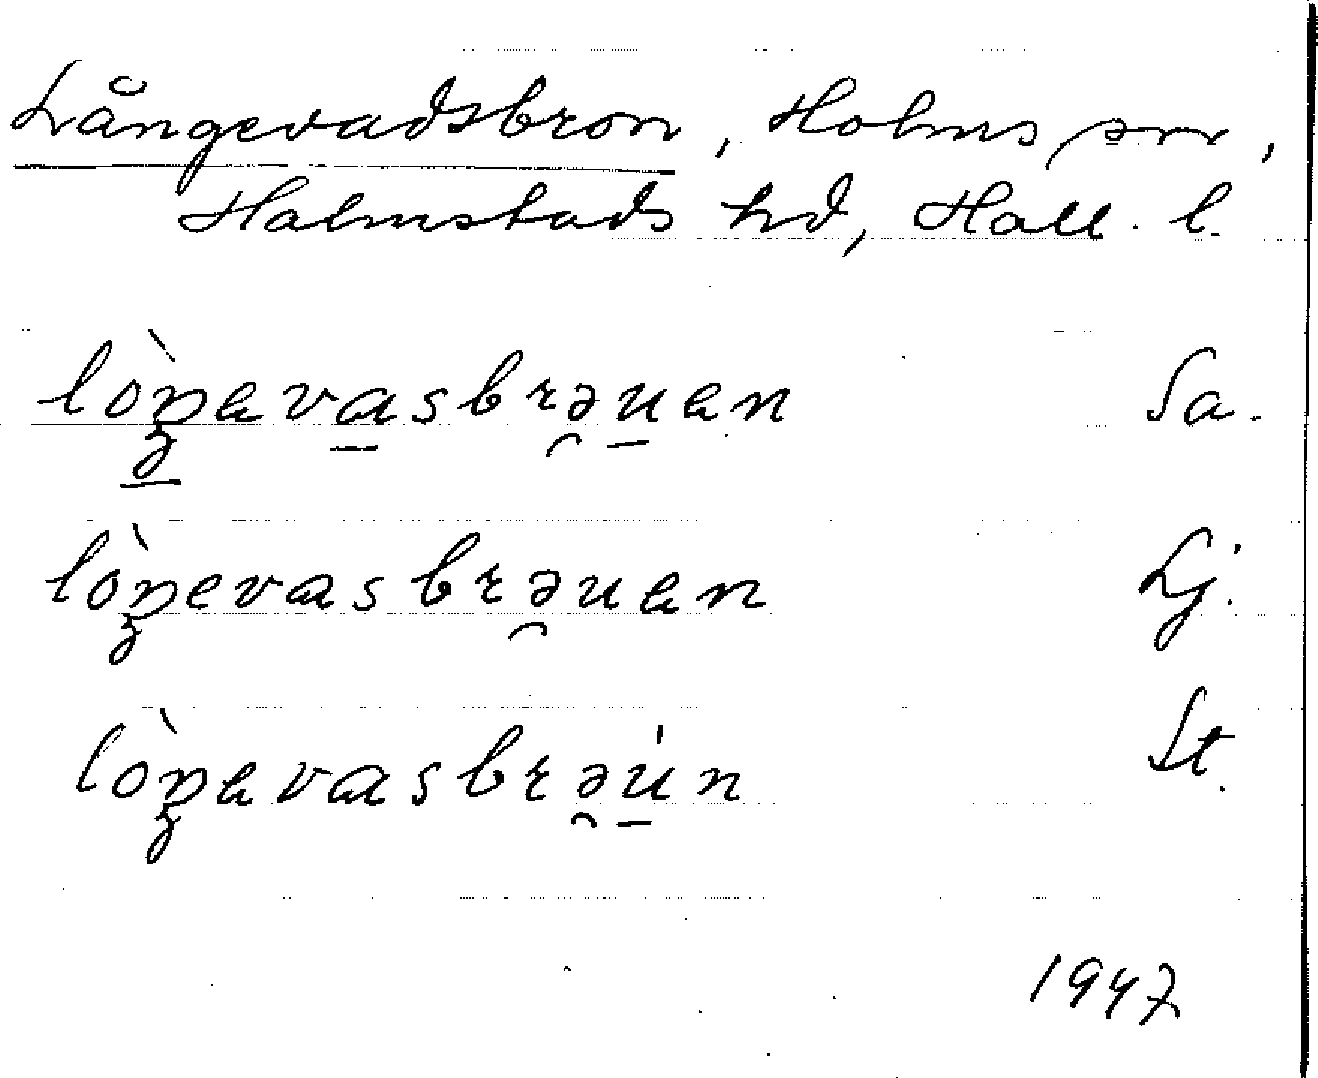 Långevadsbron, Holms sn,
Halmstads hd, Hall. l.
lòŋevasbrəuen Sa.
lòŋevasbrəuen Lj.
lòŋevasbrəu̍n St.
1947